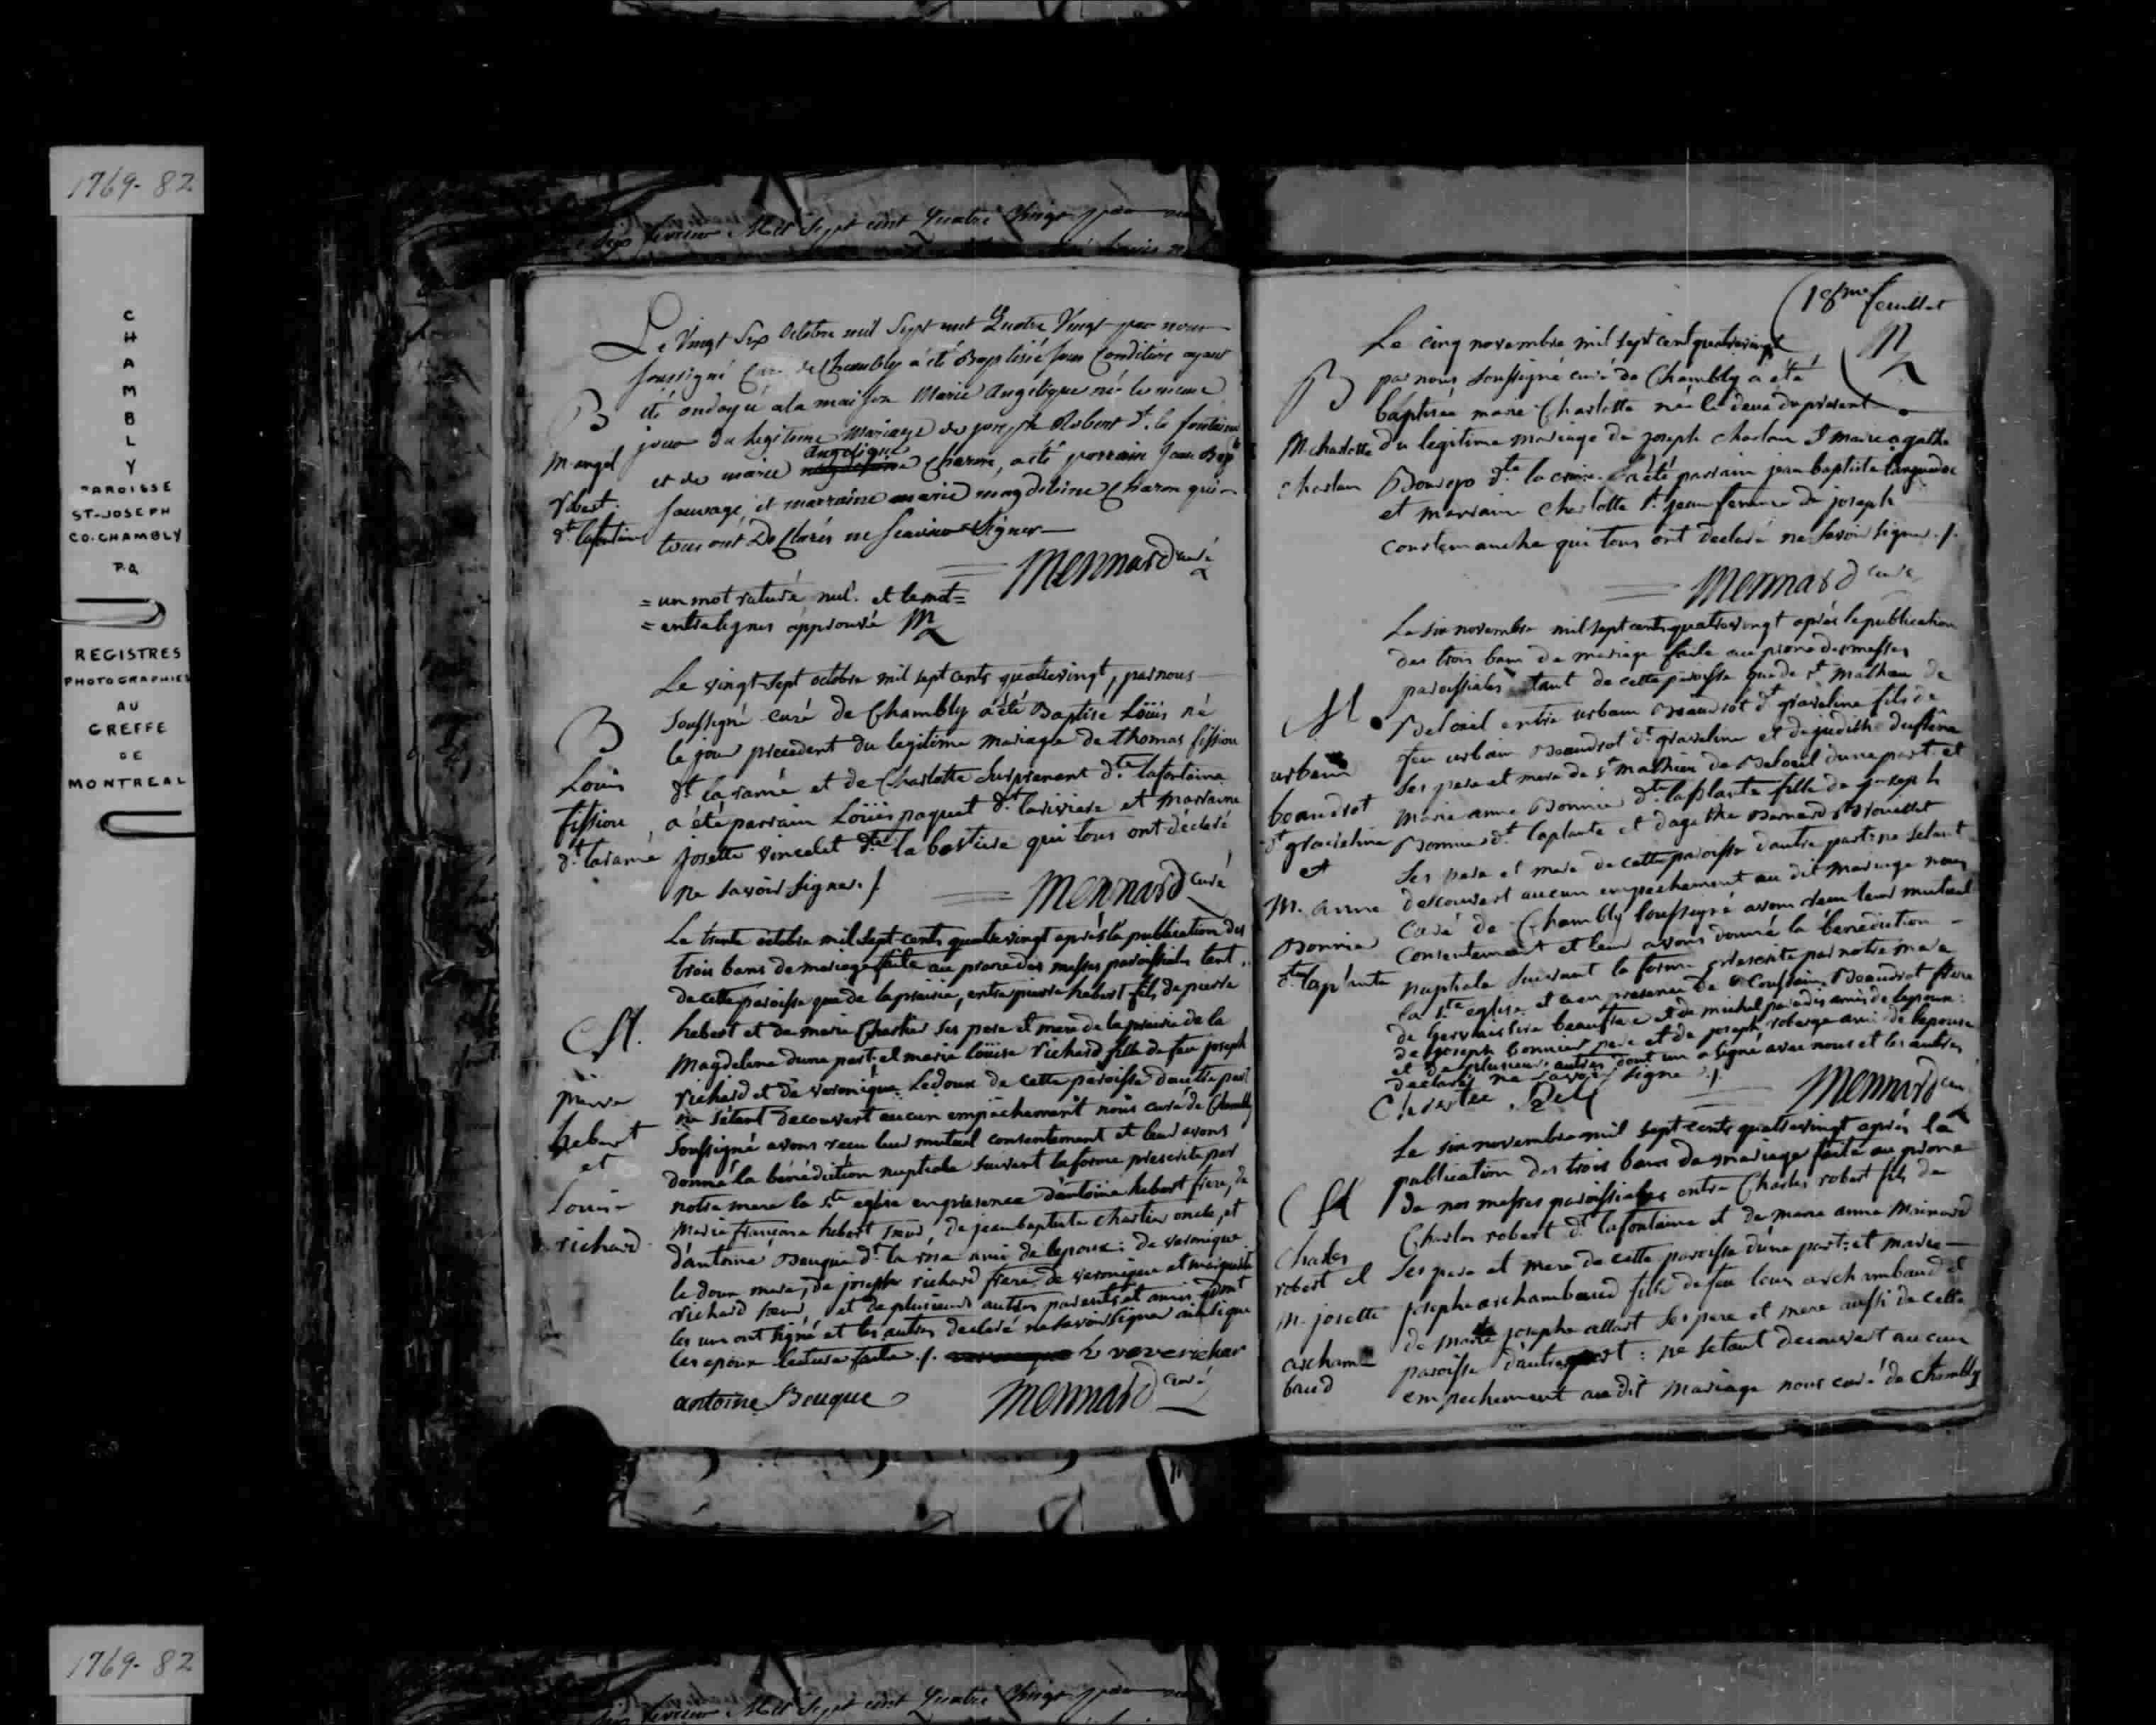 1769-82
CHAMBLY
PAROISSE
ST-JOSEPH
CO. CHAMBLY
P.Q
REGISTRES
PHOTOGRAPHIES
AU
GREFFE
DE
MONTREAL
Mil Sept cent Quatre Vingt par
Le Vingt Six Octobre mil Sept cent Quatre Vingt par nous
soussigné Curé de Chambly a été Baptisée sous Condition ayant
B
été ondoyé a la maison Marie Angelique née le meme
jour du legitime Mariage de joseph Robert dt. la fontaine
M. angél
robert
dt. lafontaine
angelique
et de marie Charon, a été parrain Jean Bapte
sauvage, et marraine marie magdeleine Charon qui
tous ont Declarés ne scavoir signer
Mennard curé
= un mot raturé nul. et le mot =
= entrelignes approuvé M
Le vingt-sept octobre mil sept cents quatrevingt, par nous
B
soussigné curé de Chambly a été Baptisé Loüis né
le jour precedent du legitime mariage de thomas fissiou
Louis
fissiou
dt. laramé
dt. laramé et de Charlotte Surprenent dte. lafontaine
a été parrain Loüis paquet dt. lariviere et marraine
josette vincelet dte la bastiere qui tous ont déclaré
ne savoir signer ./.
Mennard curé
Le trente octobre mil sept-cents quatrevingt après la publication des
trois bans de mariage faite au prone des messes paroissiales tant
de cette paroisse que de laprairie, entre pierre hebert fils de pierre
M.
hebert et de marie Chartier ses pere et mere de la prairie de la
Magdelene dune part: et marie loüise richard fille de feu joseph
pierre
hebert
et
Louise
richard
richard et de veronique Ledoux de cette paroisse dautre part
ne sétant decouvert aucun empêchement nous curé de Chambly
soussigné avons recu leur mutuel consentement et leur avons
donné la bénédiction nuptiale suivant la forme prescrite par
notre mere la Ste eglise en présence dantoine hebert frere, de
Marie françoise hebert sœur, de jean baptiste chartier oncle, et
d'antoine Beuque dt. la rose ami de lepoux: de veronique
le doux mere, de joseph richard frere, de veronique et marguerite
richard sœurs, et de plusieurs autres parents et amis dont
les uns ont signé et les autres declaré ne savoir signer ainsi que
les epoux lecture faite ./.
antoine Beuque
Mennard curé
18me feuillet
M
Le cinq novembre mil sept cent quatrevingt
B
par nous soussigné curé de Chambly a été
baptisée marie Charlotte née le deux du présent
M. charlotte
charlan
du legitime mariage de joseph charlan & marie agathe
dte. la a été parrain jean baptiste languedoc
et marraine Charlotte St. jean femme de joseph
courtemanche qui tous ont declaré ne savoir signer ./.
Mennard curé
Le six novembre mil sept cents quatrevingt après la publication
des trois bans de mariage faite au prone des messes
paroissiales tant de cette paroisse que de St. mathieu de
M.
Beloeil entre urbain Beaudrot dt graveline fils de
feu urbain Beaudrot dt. graveline et de judith
urbain
beaudrot
dt graveline
et
M. anne
Bonnier
dte laplante
ses pere et mere de St mathieu de Beloeil dune part: et
Marie anne Bonnier dte. laplante fille de joseph
Bonnier dt. laplante et dagathe Bernard
ses pere et mere de cette paroisse dautre part: ne setant
decouvert aucun empechement au dit mariage nous
curé de Chambly soussigné avons recu leur mutuel
consentement et leur avons donné la bénédiction
nuptiale suivant la forme prescrite par notre mere
la Ste eglise et en presence de Beaudrot frere
de beaufrere et de michel paradis amis de lepoux:
de joseph bonnier pere et de joseph roberge ami de lepouse
et de plusieurs autres dont un a signé avec nous et les autres
declaré ne savoir signer ./.
Mennard curé
Le six novembre mil sept cents quatrevingt après la
publication des trois bans de mariage faite au prone
M
de nos messes paroissiales entre Charles robert fils de
Charles robert dt. lafontaine et de marie anne
Charles
robert et
m. josette
archam-
baud
ses pere et mere de cette paroisse dune part: et marie
josephe archambaud fille de feu louis archambaud et
de marie josephe allart ses pere et mere aussi de cette
paroisse dautre part: ne setant decouvert aucun
empechement au dit mariage nous curé de Chambly
1769-82
Mil Sept cent Quatre Vingt par